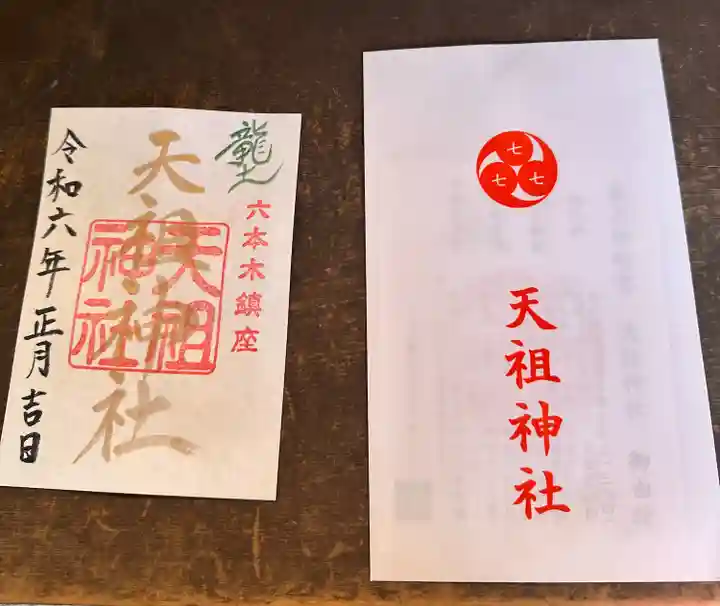 龍土
六本木鎮座
天祖神社
天祖神社
令和六年 正月吉日
七
七 七
天祖神社